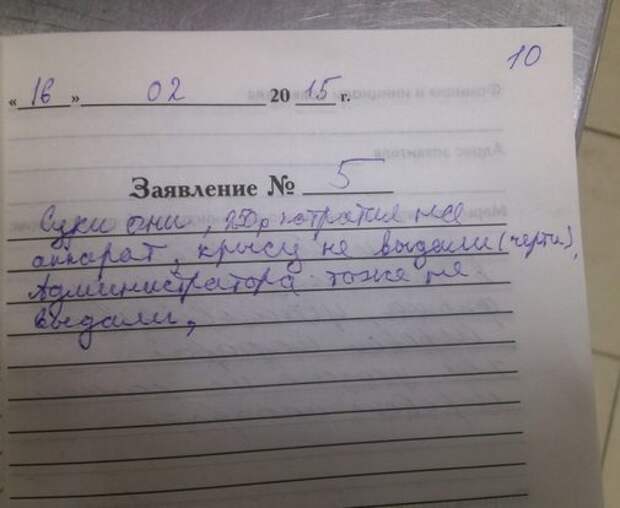 10
«16» 02 2015 г.
Заявление № 5
Суки они, 250р потратил на
аппарат, крысу не выдали (черти),
Администратора тоже не
выдали,